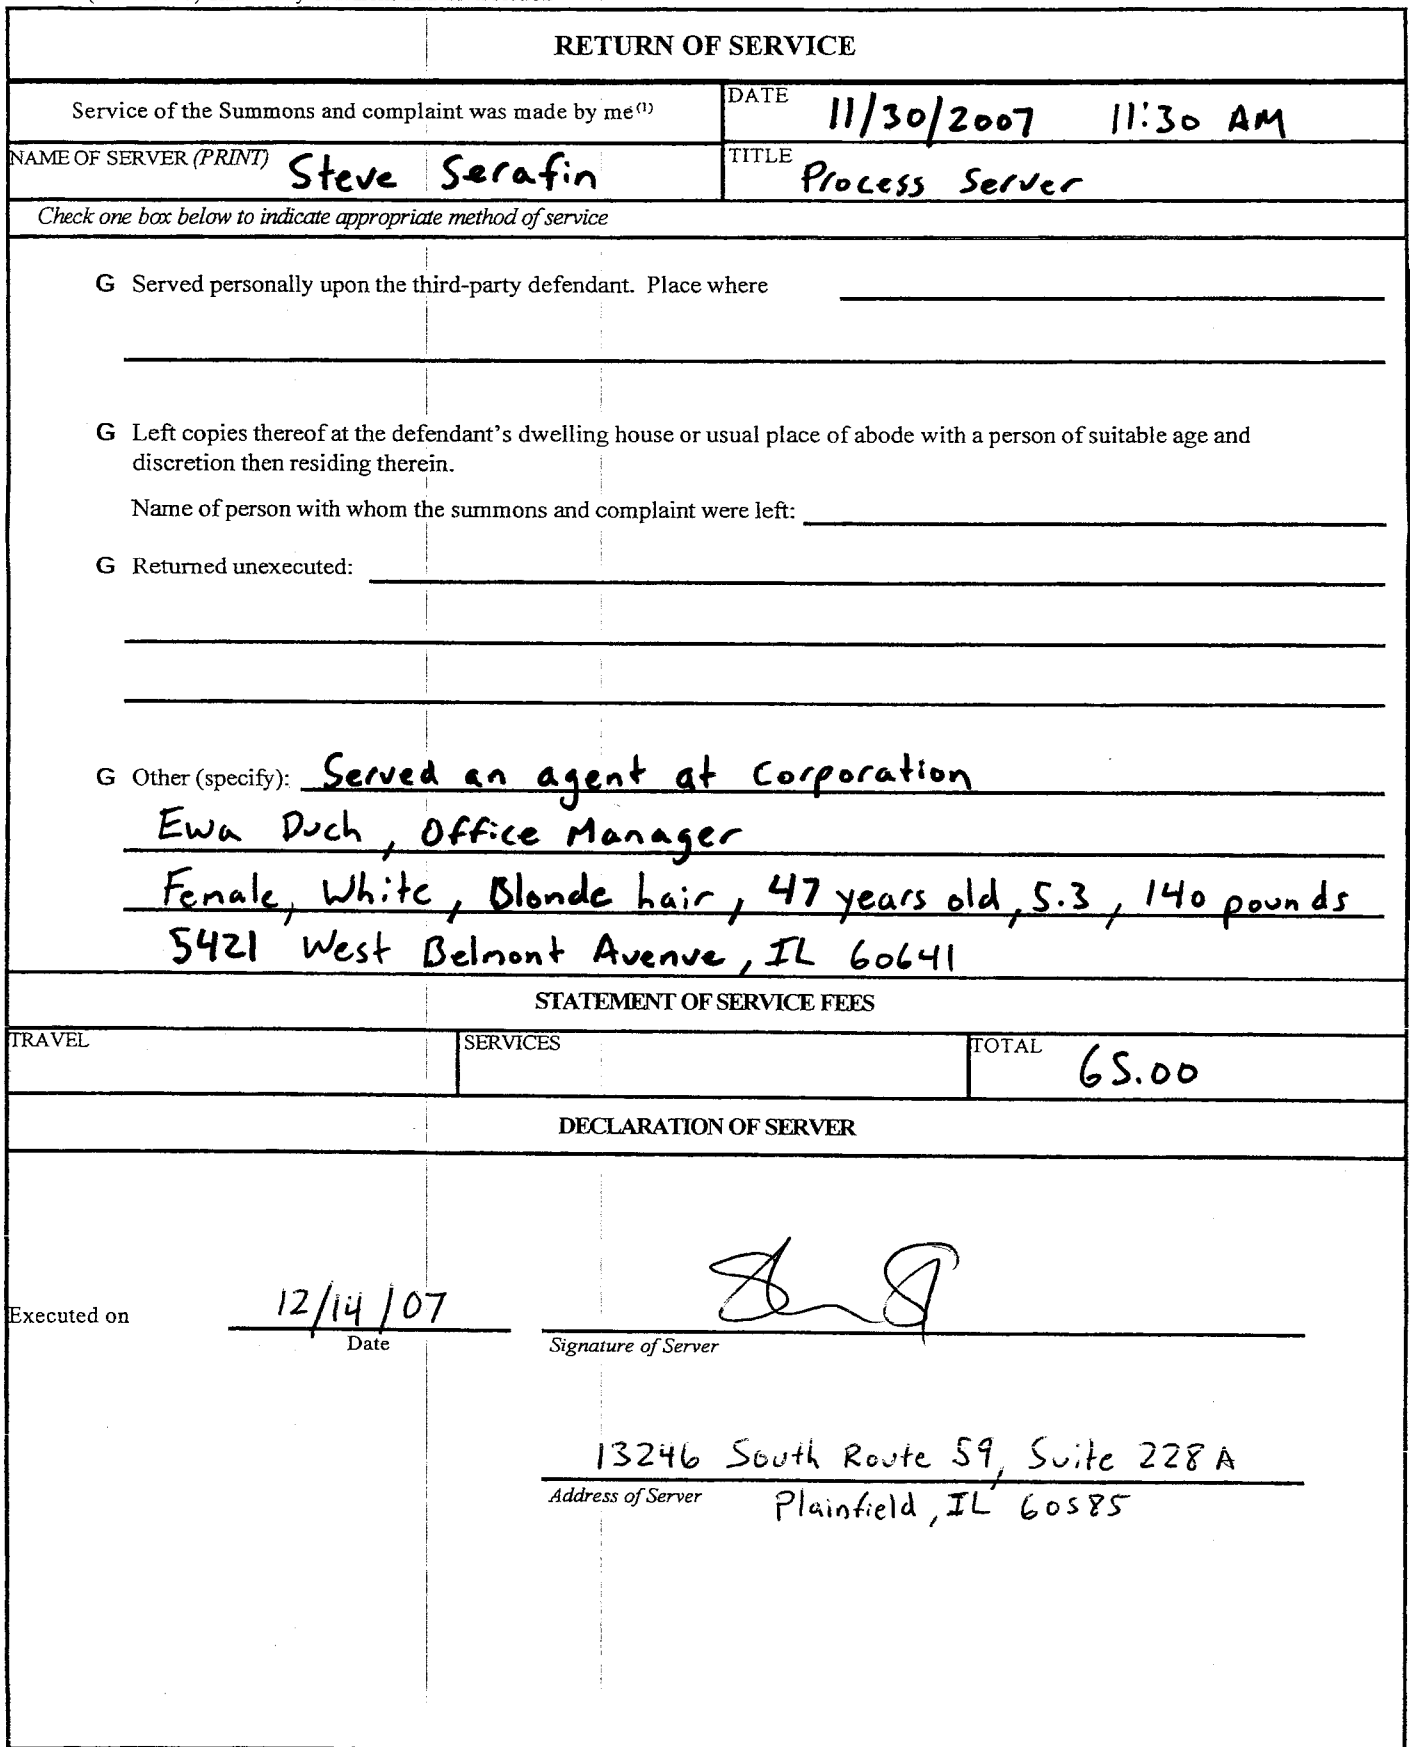 RETURN OF SERVICE
Service of the Summons and complaint was made by me(1)
DATE 11/30/2007 11:30 AM
NAME OF SERVER (PRINT) Steve Serafin
TITLE Process Server
Check one box below to indicate appropriate method of service
G Served personally upon the third-party defendant. Place where
G Left copies thereof at the defendant's dwelling house or usual place of abode with a person of suitable age and
discretion then residing therein.
Name of person with whom the summons and complaint were left:
G Returned unexecuted:
G Other (specify): Served an agent at Corporation
Ewa Duch, Office Manager
Female, White, Blonde hair, 47 years old, 5.3, 140 pounds
5421 West Belmont Avenue, IL 60641
STATEMENT OF SERVICE FEES
TRAVEL
SERVICES
TOTAL 65.00
DECLARATION OF SERVER
Executed on 12/14/07
Date
Signature of Server
13246 South Route 59, Suite 228A
Address of Server Plainfield, IL 60585